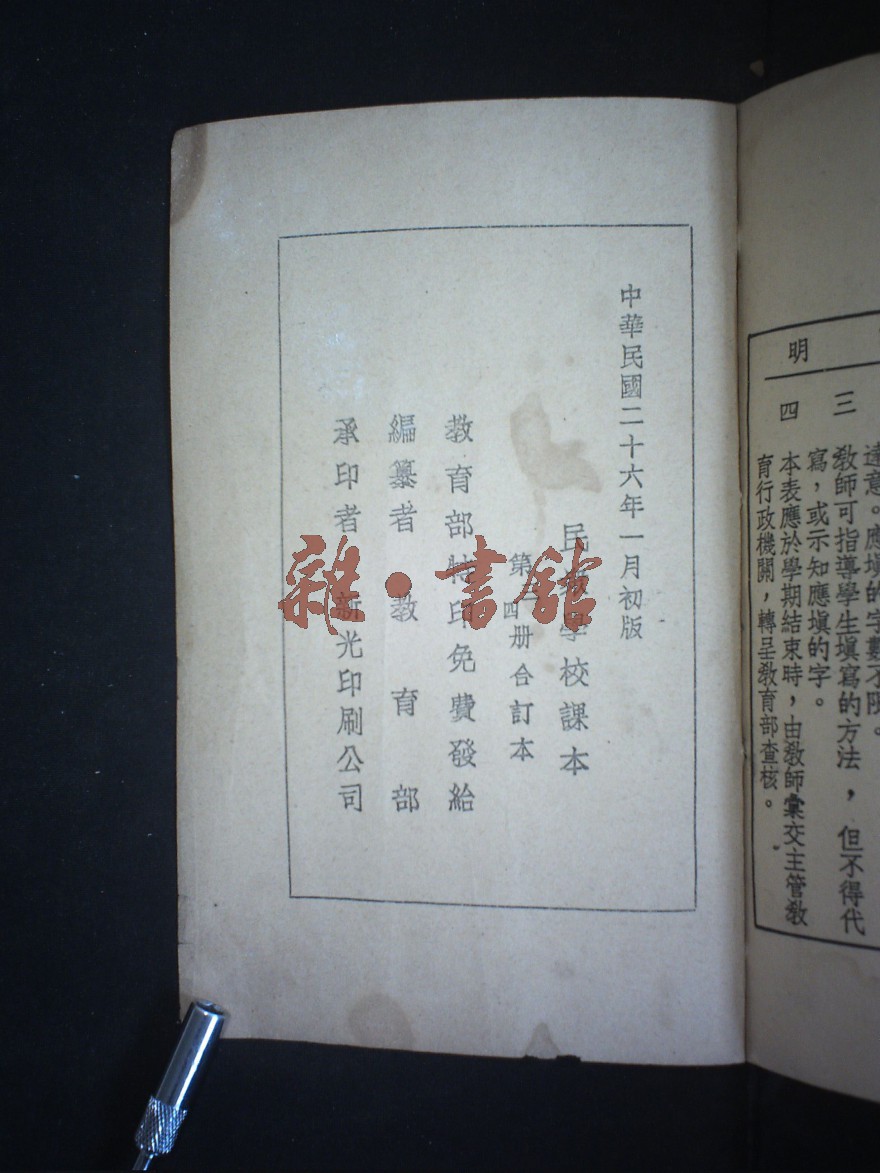 明
達意。應填的字數不限。
三 教師可指導學生填寫的方法，但不得代
寫，或示知應填的字。
四 本表應於學期結束時，由教師彙交主管教
育行政機關，轉呈教育部查核。
中華民國二十六年一月初版
民 學校課本
第 四册合訂本
教育部特印免費發給
編纂者 教育部
承印者 新光印刷公司
雜·書館